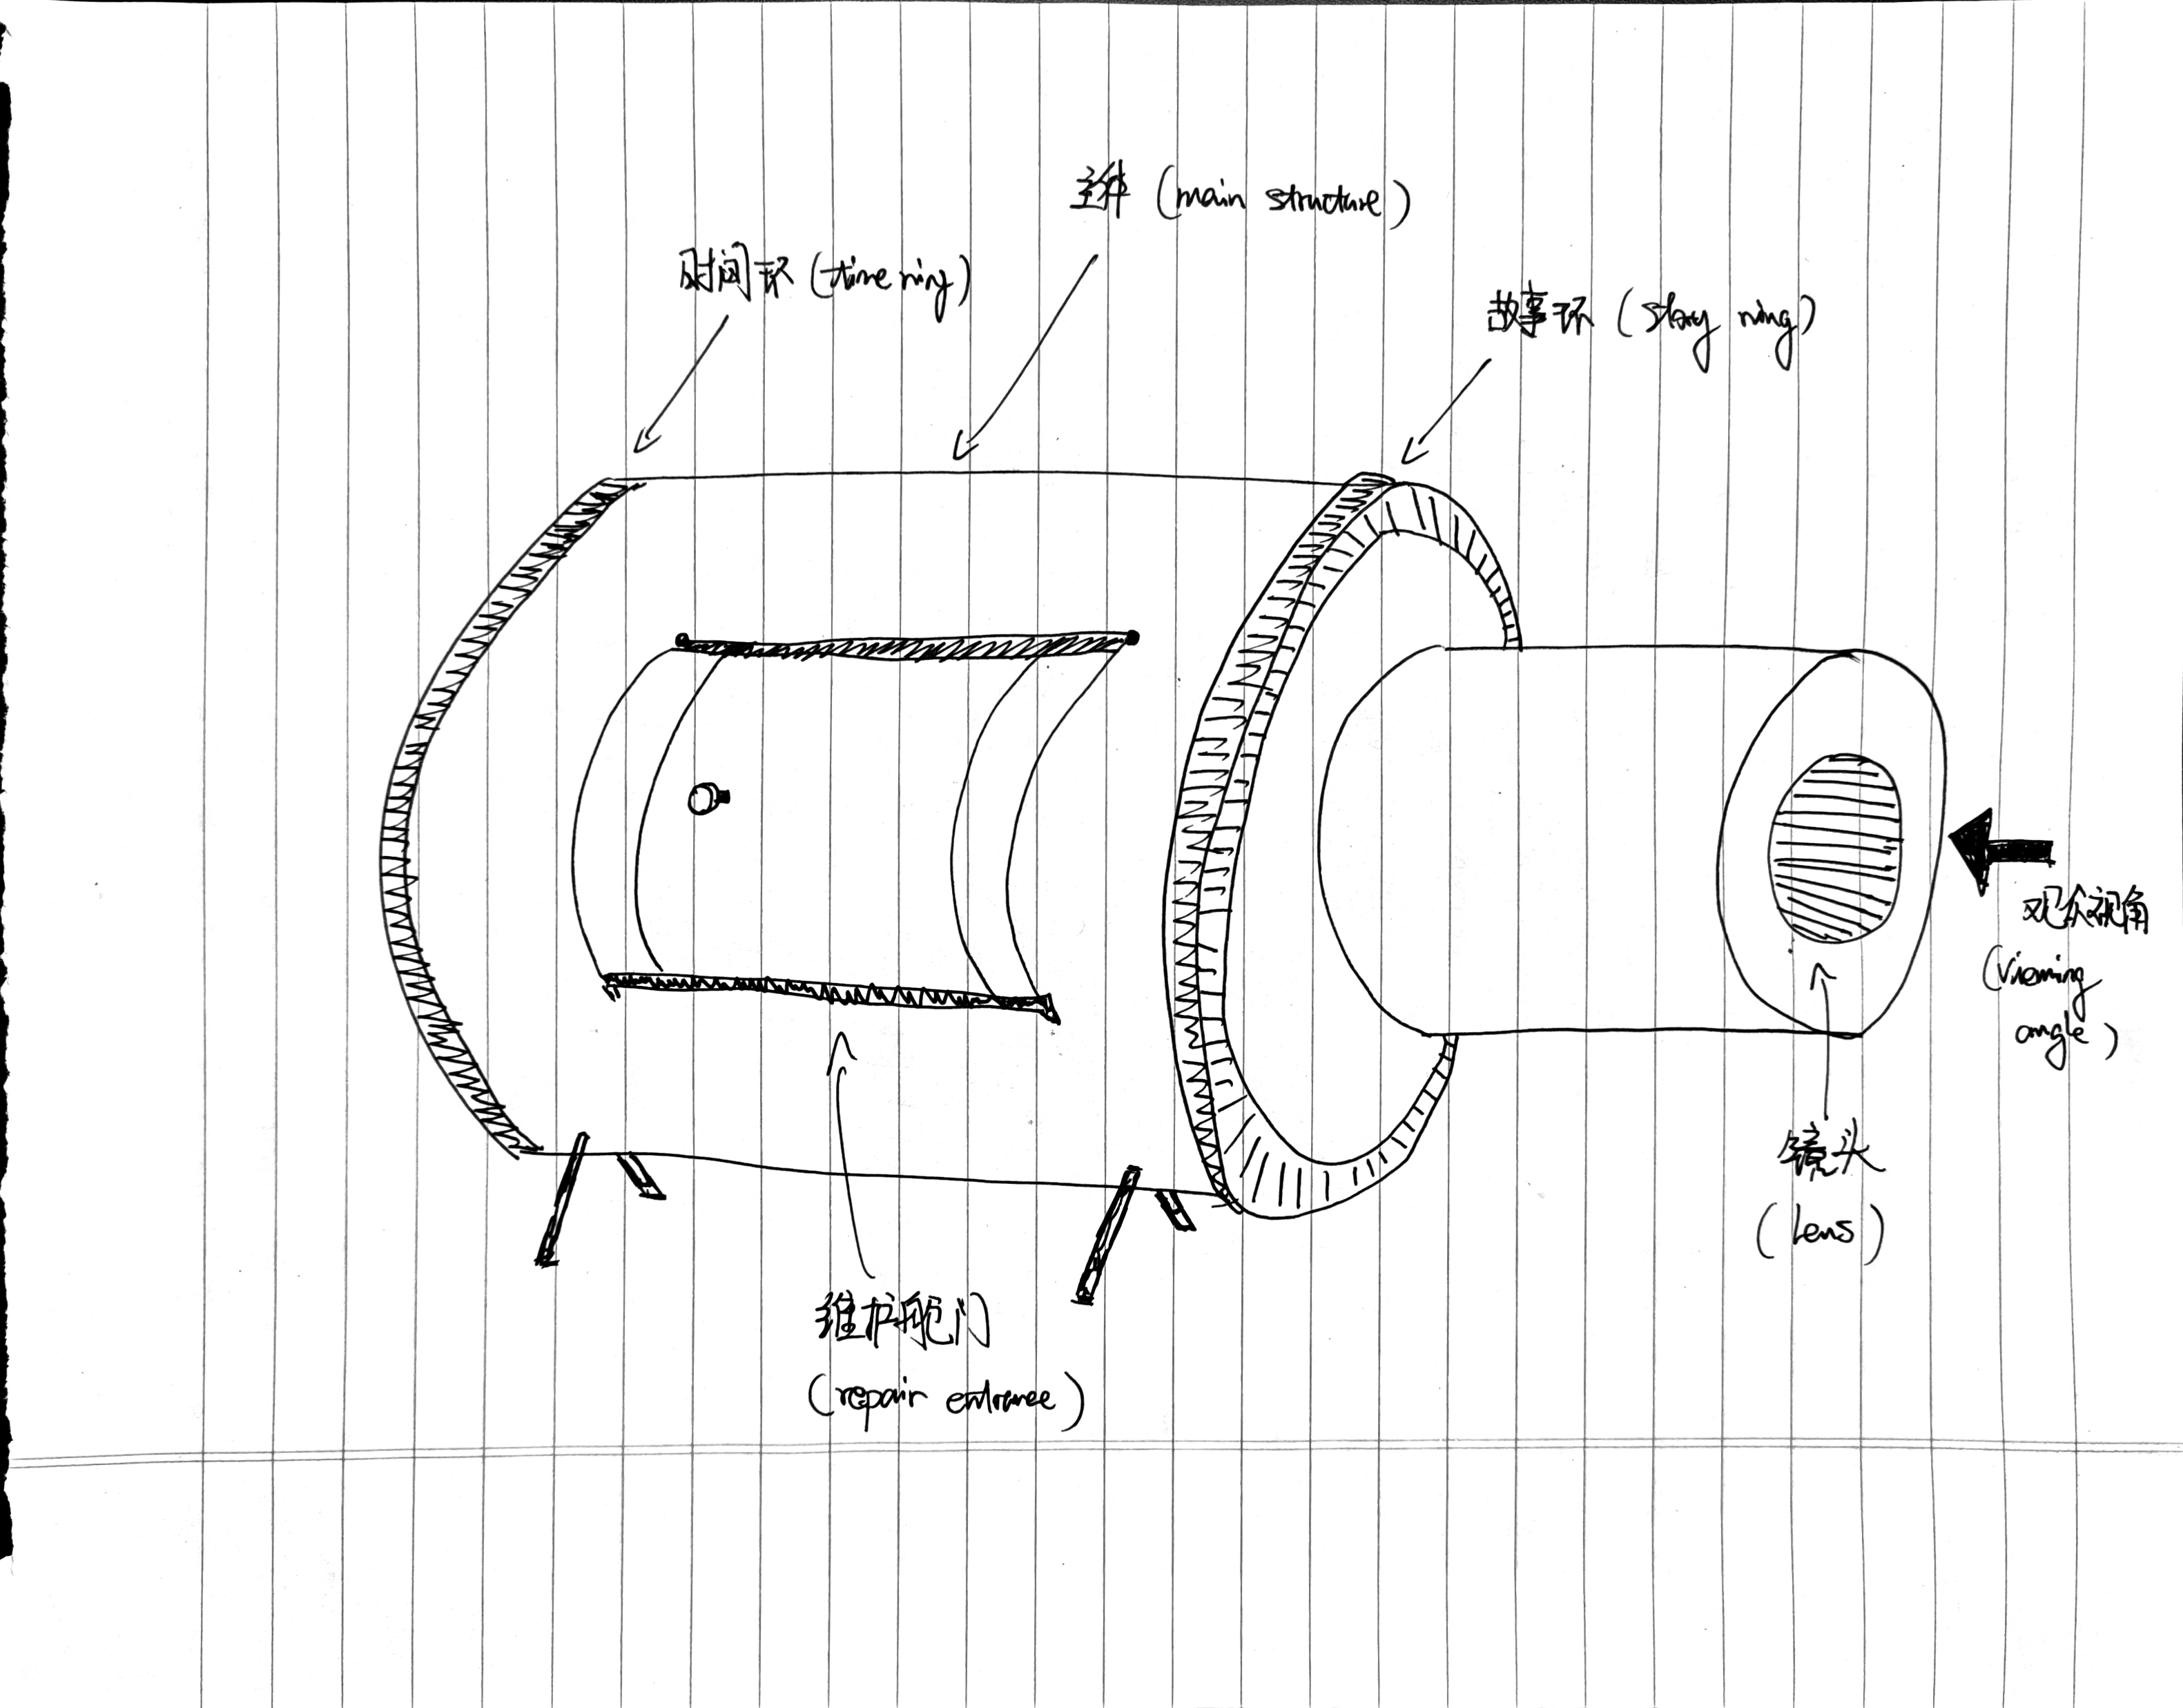 主体 (main structure)
时间环 (time ring)
故事环 (story ring)
观众视角
(Viewing
angle)
镜头
(Lens)
维护舱门
(repair entrance)